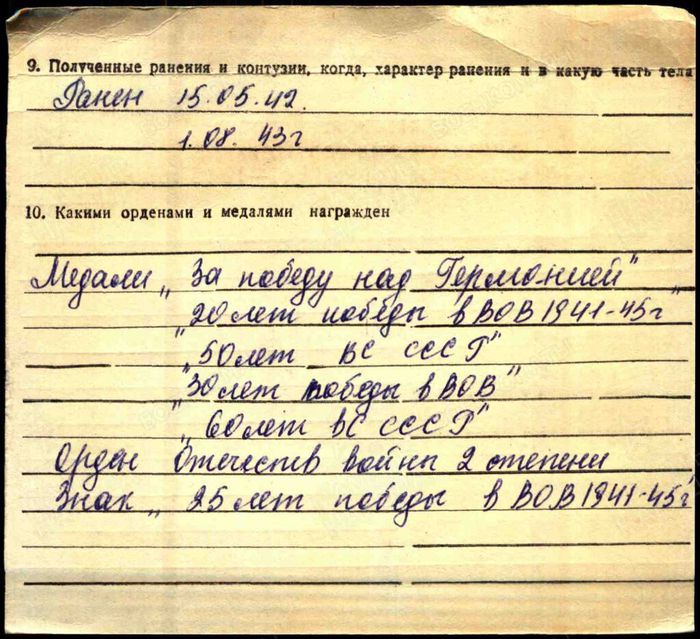 9. Полученные ранения и контузии, когда, характер ранения и в какую часть тела
Ранен 15.05.42.
1.08.43г
10. Какими орденами и медалями награжден
Медали „За победу над Германией"„
„20 лет победы в ВОВ 1941-45г
„50 лет ВС СССР"
„30 лет победы в ВОВ"
„60 лет ВС СССР"
Орден Отечеств войны 2 степени
Знак „25 лет победы в ВОВ 1941-45г"